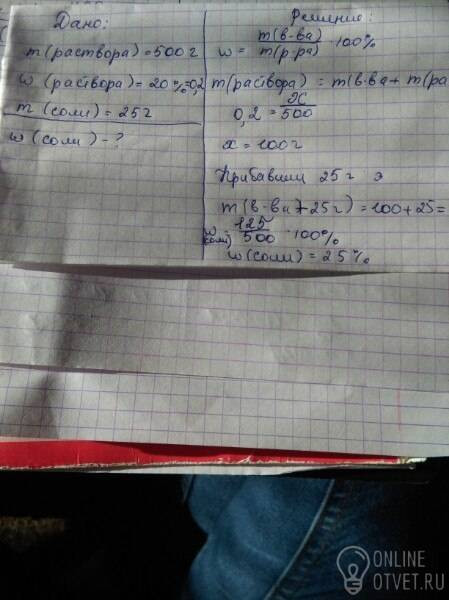 Дано:
m(раствора)=500г
w(раствора)=20%=0,2
m(соли)=25г
w(соли)-?
Решение:
w = m(в-ва)/m(р-ра) ·100%
m(раствора) = m(в-ва + m(ра
0,2 = X/500
x = 100г
Прибавили 25 г э
m(в-ва+25г) = 100+25=
w(соли) = 125/500 ·100%
w(соли) = 25%
ONLINE
OTVET.RU